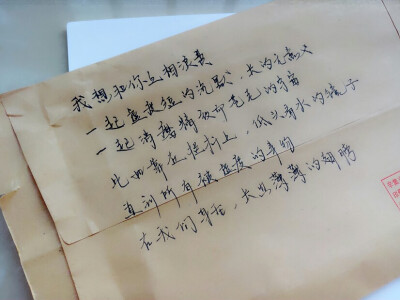 我想和你互相浪费
一起虚度短的沉默，长的无意义
一起消磨精致却苍老的宇宙
比如靠在栏杆上，低头看水的镜子
直到所有被虚度的事物
在我们身后，长出薄薄的翅膀